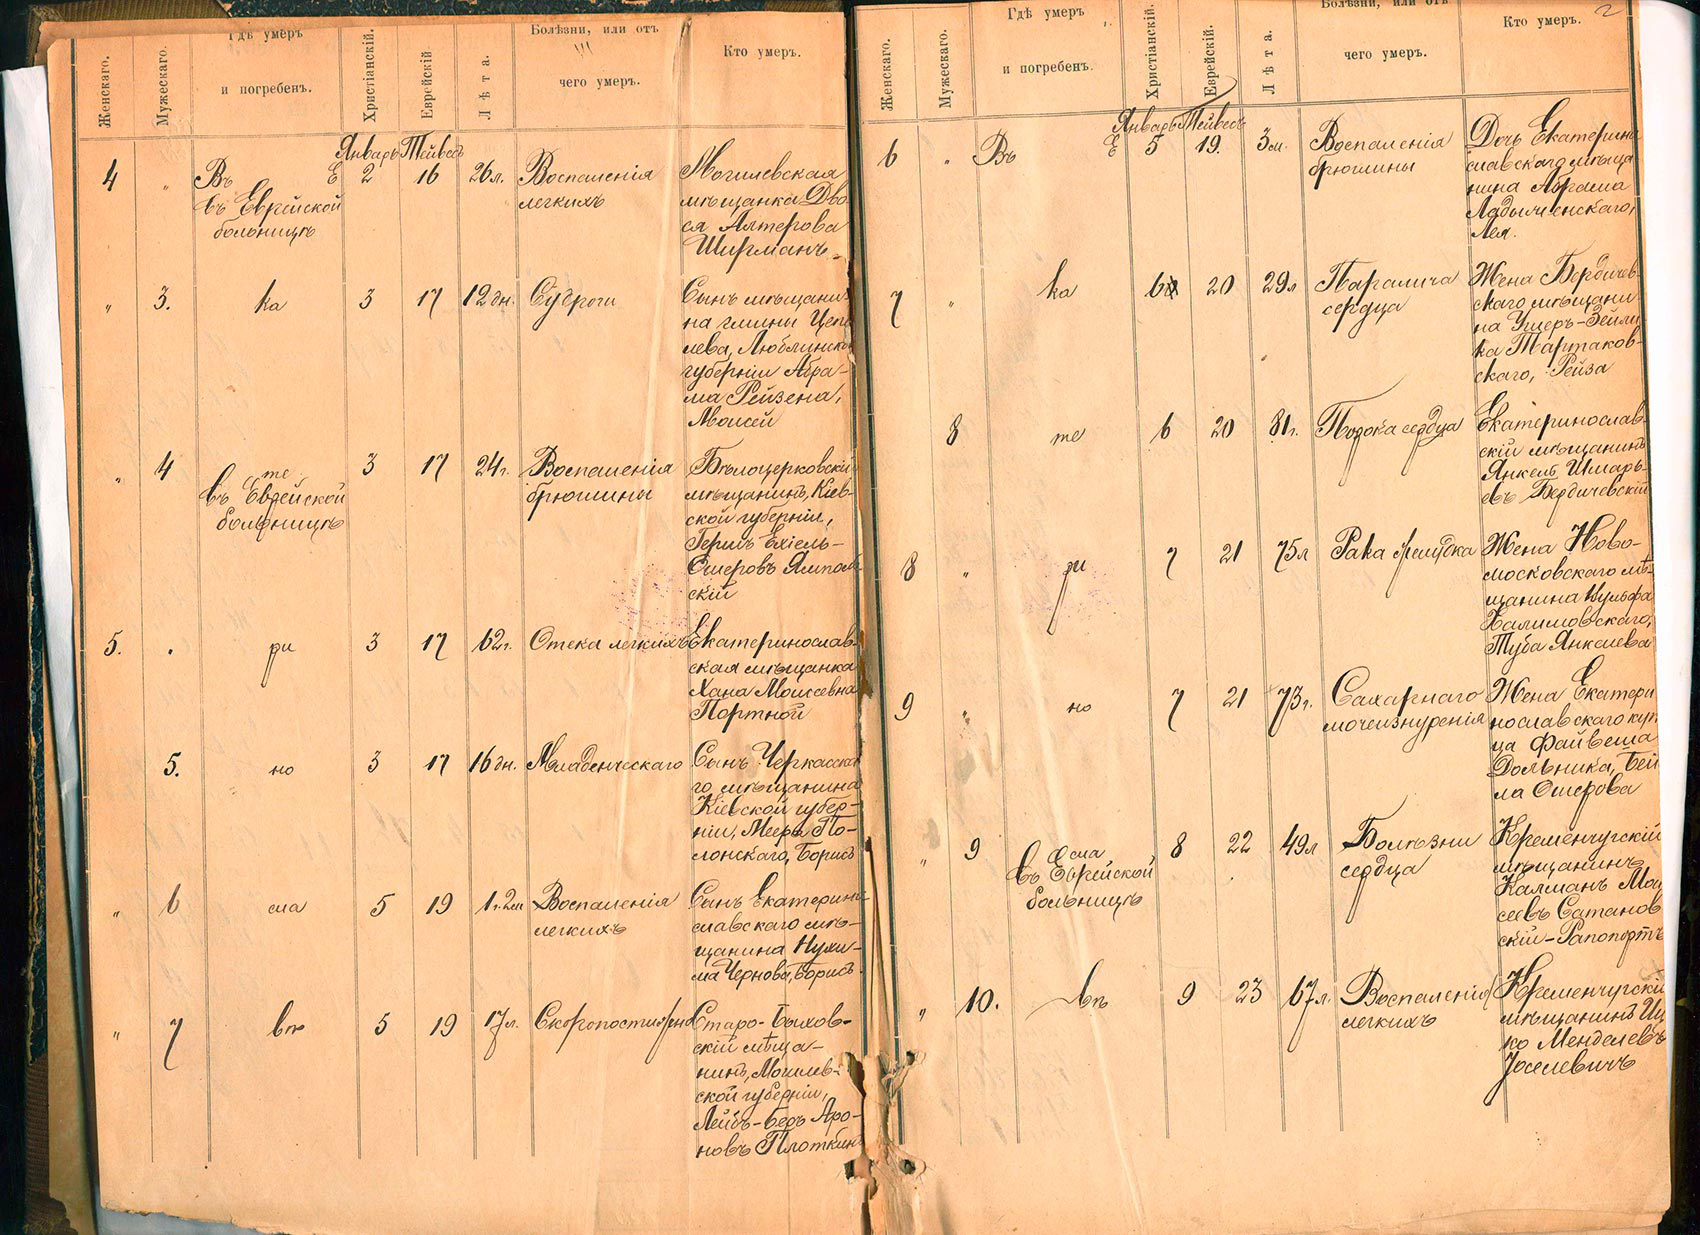 Женскаго.
Мужескаго.
Гдѣ умеръ
и погребенъ.
Христіанскій.
Еврейскій
Лѣта.
Болѣзни, или отъ
чего умеръ.
Кто умеръ.
Январь Тейвесъ
4 " Въ Е 2 16 26 л. Воспаленія Могилевская
въ Еврейской легкихъ мѣщанка Дво
больницѣ ся Алтерова
Ширманъ
" 3. ка 3 17 12 дн. Судроги Сынъ мѣщани
на гмины Цепе
лева, Люблинско
губерніи Абра-
ма Рейзена,
Моисей
" 4 те 3 17 24 г. Воспаленія Бѣлоцерковскій
въ Еврейской брюшины мѣщанинъ, Кіев-
больницѣ ской губерніи,
Гершъ Ехіель-
Ошеровъ Ямполь
скій
5. " ри 3 17 62 г. Отека легкихъ Екатеринослав-
ская мѣщанка
Хана Моисеевна
Портной
5. но 3 17 16 дн. Младенческаго Сынъ Черкасска
го мѣщанина
Кіевской губер-
ніи, Меера По-
лонскаго, Борисъ
" 6 сла 5 19 1 г. 2 м Воспаленія Сынъ Екатерино
легкихъ славскаго мѣ-
щанина Нухи-
ма Чернова, Борисъ
" 7 вѣ 5 19 17 л. Скоропостижно Старо-Быхов-
скій мѣща-
нинъ, Могилев-
ской губерніи,
Лейбъ-Беръ Аро-
новъ Плоткинъ
2
Женскаго.
Мужескаго.
Гдѣ умеръ
и погребенъ.
Христіанскій.
Еврейскій.
Лѣта.
Болѣзни, или отъ
чего умеръ.
Кто умеръ.
Январь Тейвесъ
6 " Въ Е 5 19. 3 м. Воспаленія Дочь Екатерино
брюшины славскаго мѣща
нина Абрама
Ладыженскаго,
Лея.
7 " ка 6 20 29 л Паралича Жена Бердичев-
сердца скаго мѣщани
на Ушеръ-Зейли
ка Тартаков-
скаго, Рейза
8 те 6 20 81 г. Порока сердца Екатеринослав-
скій мѣщанинъ
Янкель Шмарь-
евъ Бердичевскій
8 " ри 7 21 75 л Рака желудка Жена Ново-
московскаго мѣ-
щанина Вульфа
Халимовскаго,
Туба Янкелева
9 " но 7 21 73 г. Сахарнаго Жена Екатери
мочеизнуренія нославскаго куп
ца Файвеша
Дольника, Бей
ла Ошерова
" 9 сла 8 22 49 л Болѣзни Кременчугскій
въ Еврейской сердца мѣщанинъ
больницѣ Калманъ Мои
сеевъ Сатанов
скій-Рапопортъ
" 10. вѣ 9 23 67 л. Воспаленія Кременчугскій
легкихъ мѣщанинъ Иц
ко Менделевъ
Іоселевичъ